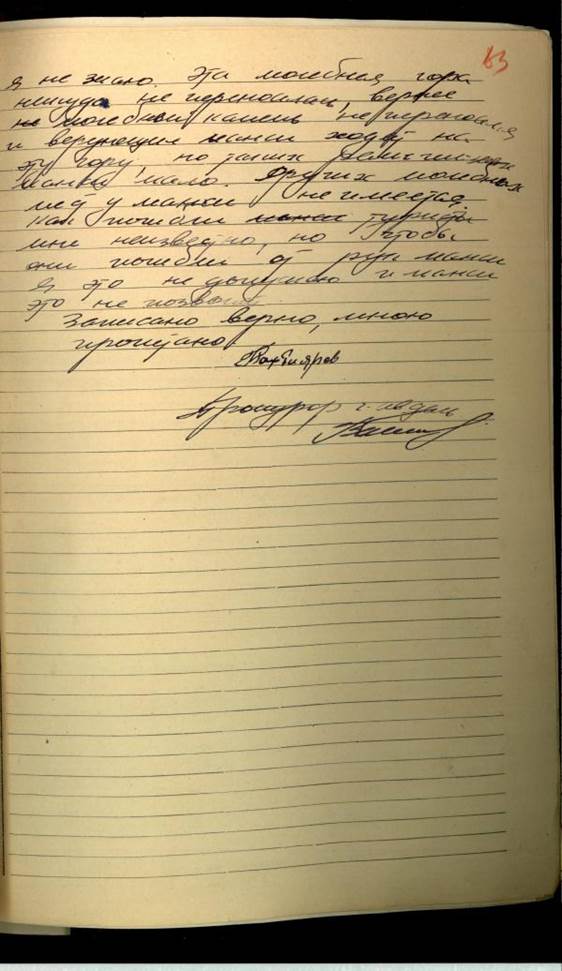 63
я не знаю. Эта молебная гора
никуда не переносилась, вернее
не молебный камень не переносился
и верующие манси ходят на
эту гору, но таких
манси мало. Других молебных
мест у манси не имеется,
как погибли манси туристы
мне неизвестно, но чтобы
они погибли от рук манси
я это не допускаю и манси
это не
Записано верно, мною
прочитано
Бахтияров
Прокурор г. Ивдель